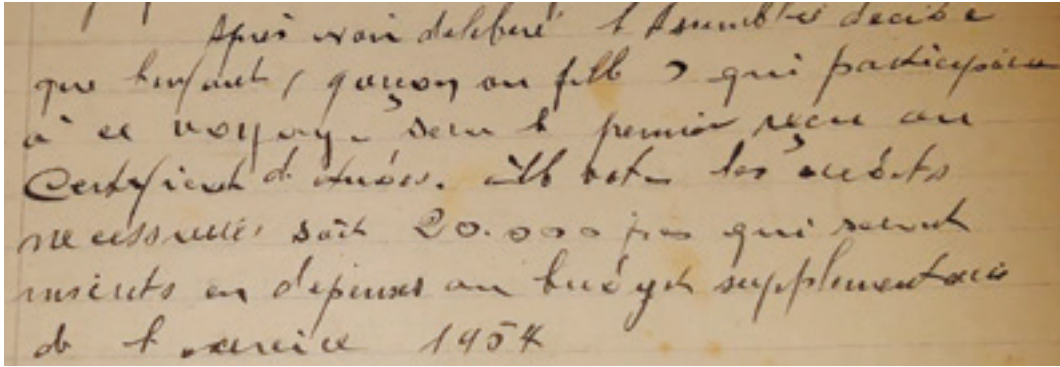 Après avoir délibéré l'Assemblée décide
que l'enfant, (garçon ou fille) qui participera
à ce voyage sera le premier reçu au
Certificat d'études. Elle vote les crédits
necessaires soit 20.000 frs qui seront
inscrits en dépenses au budget supplémentaire
de l'exercice 1954